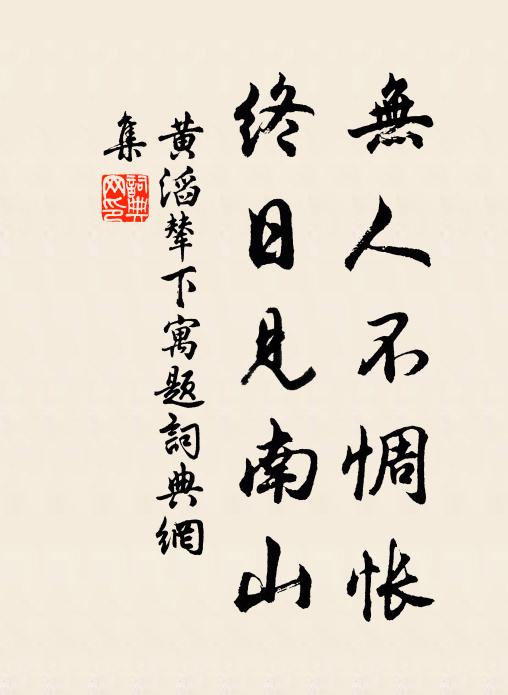 無人不惆悵
終日見南山
黄滔輦下寓題詞典網
集
詞典
网印